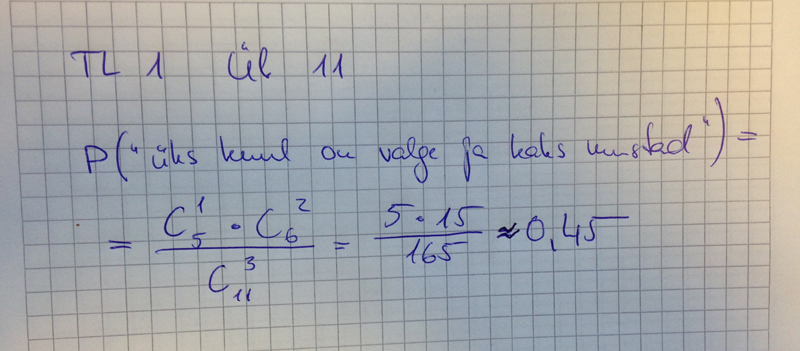 TL 1 Ül 11
P("üks kuul on valge ja kaks mustad") =
= C₅¹ · C₆² / C₁₁³ = 5 · 15 / 165 ≈ 0,45